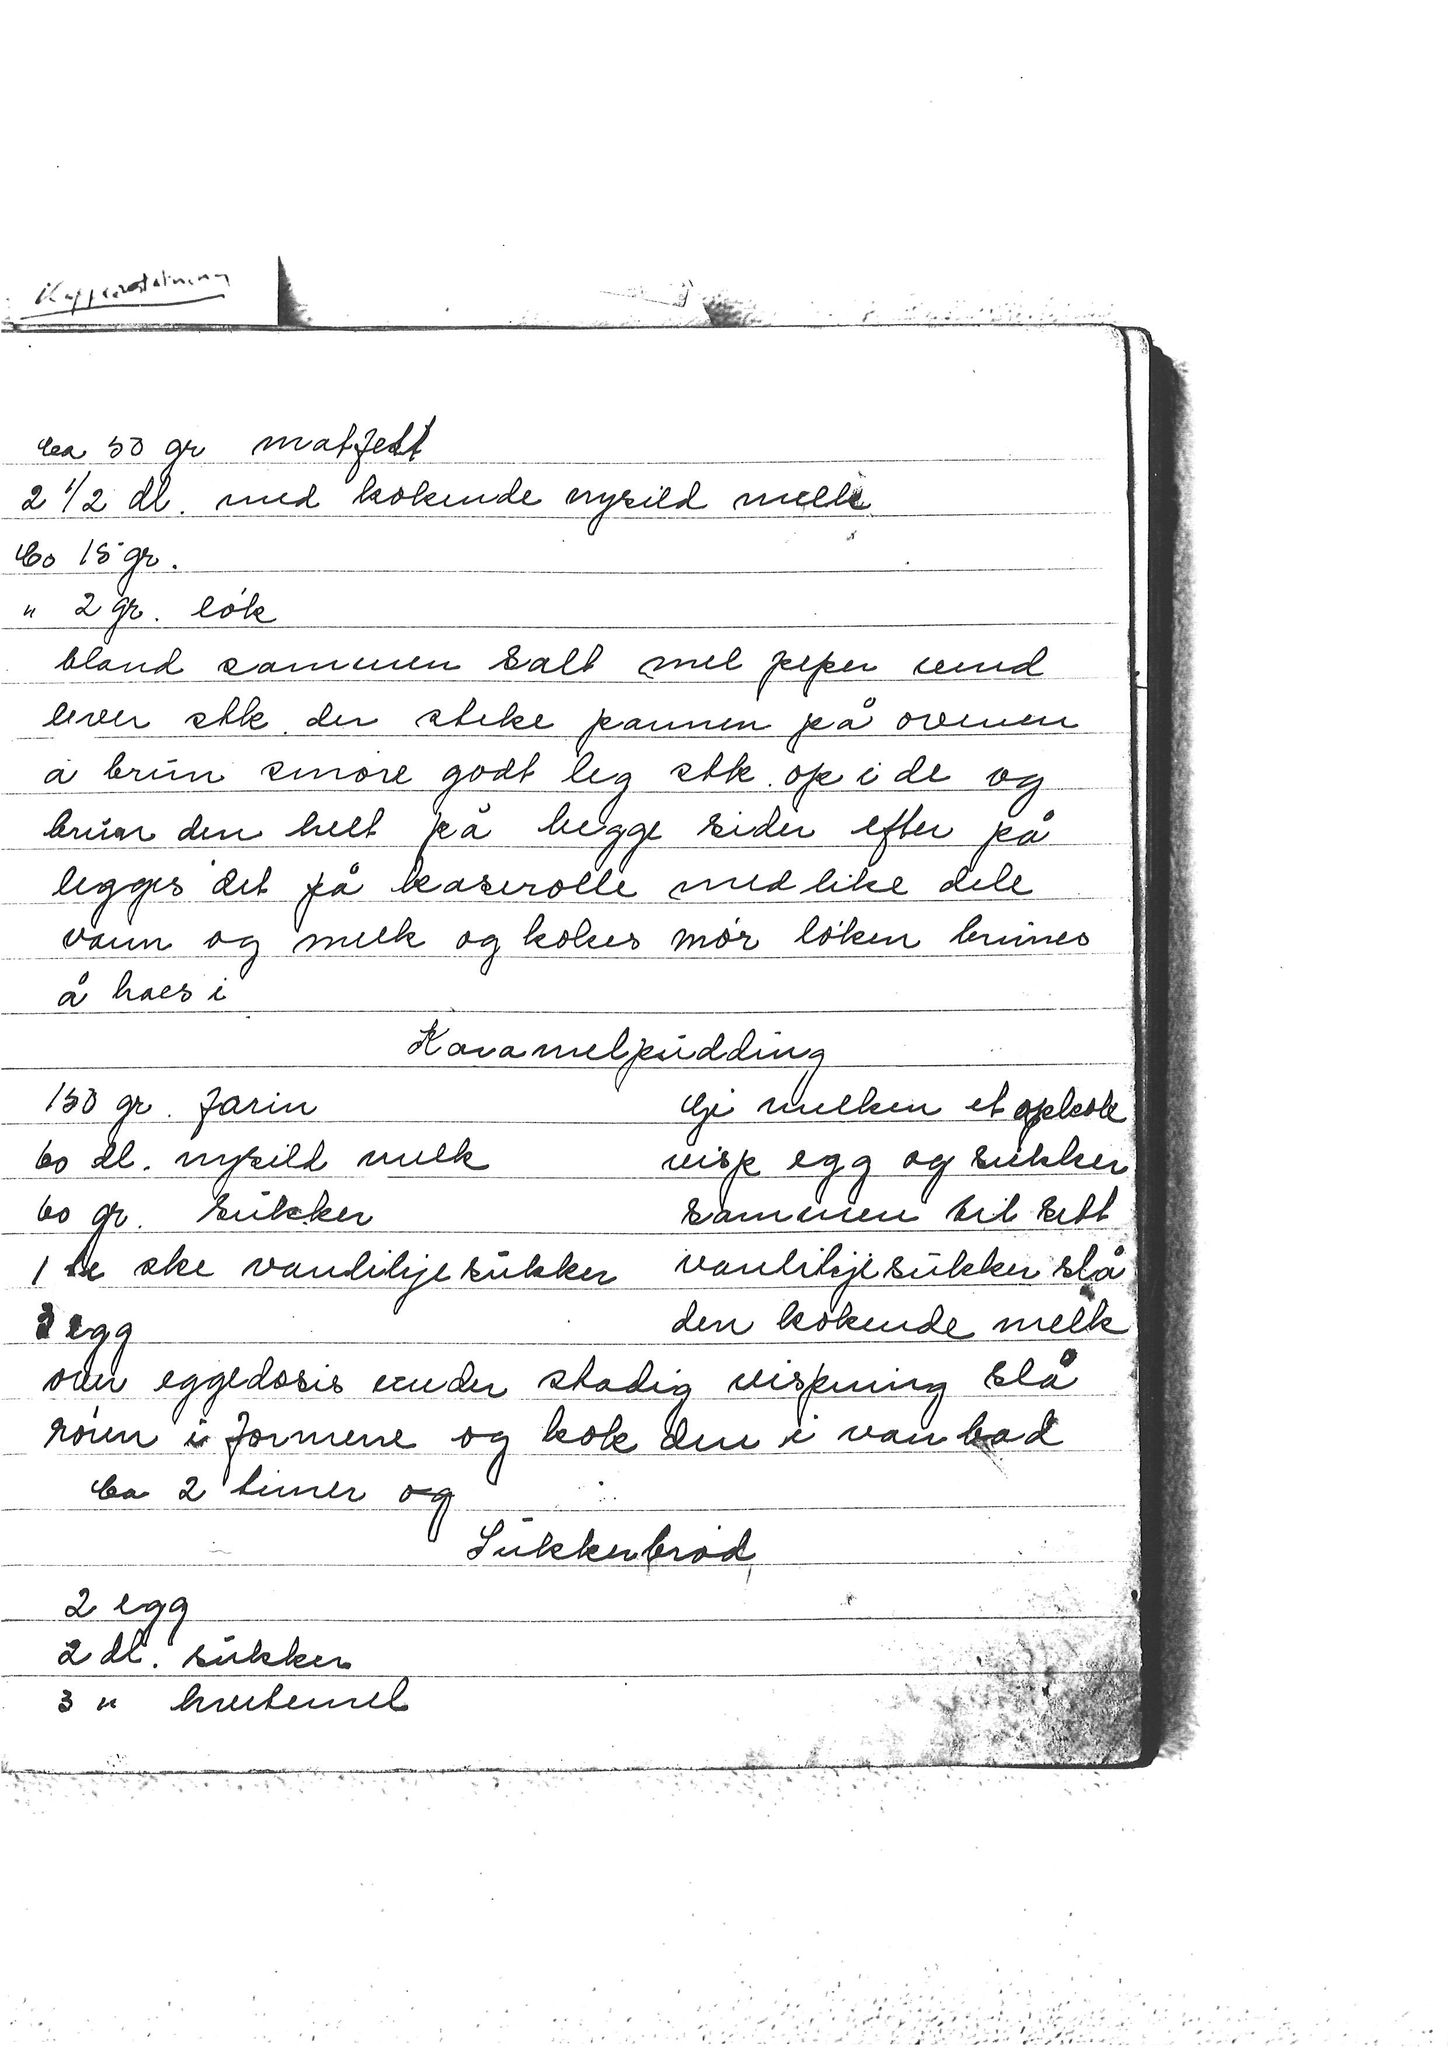 ca 50 gr matfett
2 1/2 dl. med kokende nysild melk
Co 15 gr.
" 2 gr. løk
bland sammen salt mel peper vend
lever stk. der steke pannen på ovenen
å brun smøre godt leg stk. op i de og
brun den helt på begge sider efter på
legges det på kaserolle med like dele
vann og melk og kokes mør løken brunes
å haes i
Karamelpudding
150 gr. farin
60 dl. nysild melk
60 gr. sukker
1 te ske vanlilje sukker
3 egg
Gi melken et opkok
visp egg og sukker
sammen til sett
vanlilje sukker slå
den kokende melk
over eggedosis under stadig vispning slå
røren i formene og kok den i vanbad
ca 2 timer og
Sukkerbrød
2 egg
2 dl. sukker
3 " hvetemel